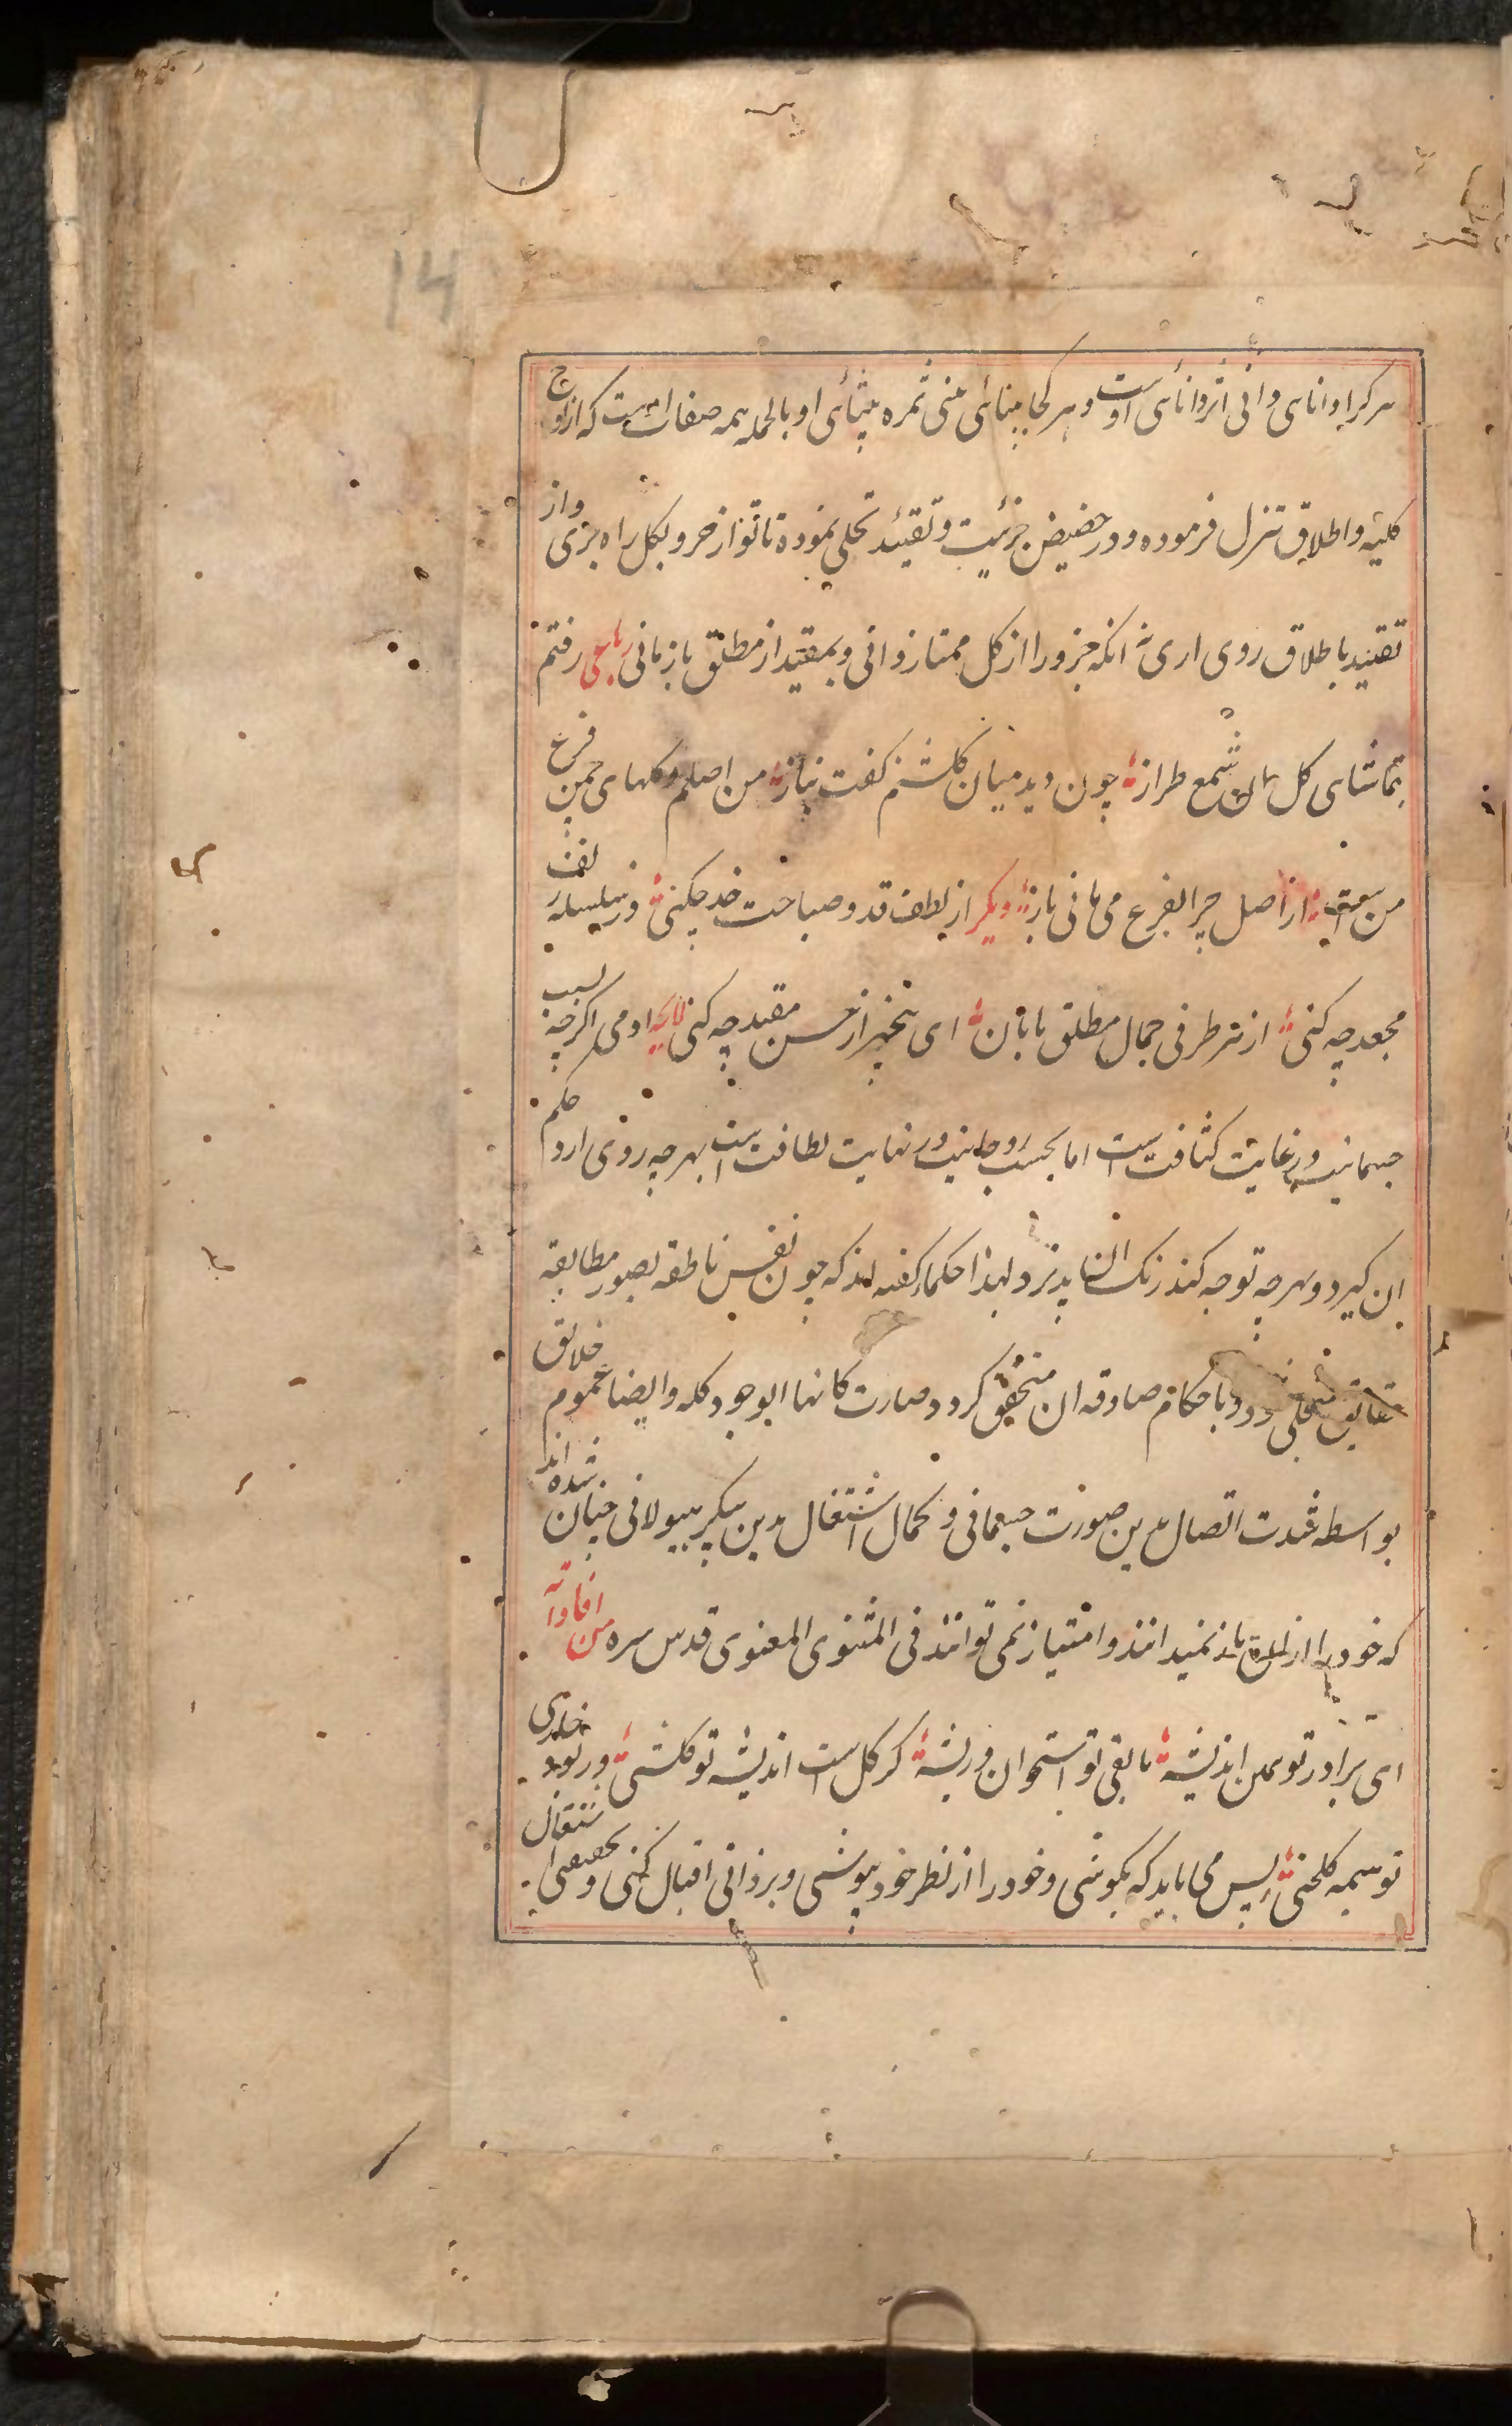 14
هر کرا دانای دانی اثر دانائی اوست و هر کجا بینائی بینی ثمره بینائی او بالجمله همه صفات اوست که از اوج
کلیة و اطلاق تنزل فرموده و در حضیض جزئیت و تقیید تجلی نموده تا تو از جزو بکل راه بری و از
تقیید باطلاق روی اری نه انکه جزو را از کل ممتاز دانی و بمقید از مطلق باز مانی رباعی رفتم
بتماشای کل ان شمع طراز چون دید میان کلشنم کفت بناز من اصلم و کلهای چمن فرع
من است از اصل چرا بفرع می مانی باز دیکر از لطف قد و صباحت خد چکنی وز سلسله زلف
مجعد چه کنی از هر طرفی جمال مطلق تابان ای بیخبر از حسن مقید چه کنی لایحه ادمی اکرچه بسبب
جسمانیت در غایت کثافت است اما بحسب روحانیت در نهایت لطافت است بهر چه روی ارد حکم
ان کیرد و بهر چه توجه کند رنک ان پذیرد و لهذا حکما کفته اند که چون نفس ناطقه بصور مطابقه
حقایق متجلی شود و باحکام صادقه ان متحقق کردد صارت کانها الوجود کله و ایضا عموم خلایق
بواسطه شدت اتصال بدین صورت جسمانی و کمال اشتغال بدین پیکر هیولانی چنان شده اند
که خود را از ان باز نمیدانند و امتیاز نمی توانند فی المثنوی المعنوی قدس سره من افاداته
ای برادر تو همین اندیشه ما بقی تو استخوان و ریشه کر کل است اندیشه تو کلشنی ور بود خاری
تو هیمه کلخنی پس می باید که بکوشی و خود را از نظر خود بپوشی و بر ذاتی اقبال کنی و بحقیقی اشتغال